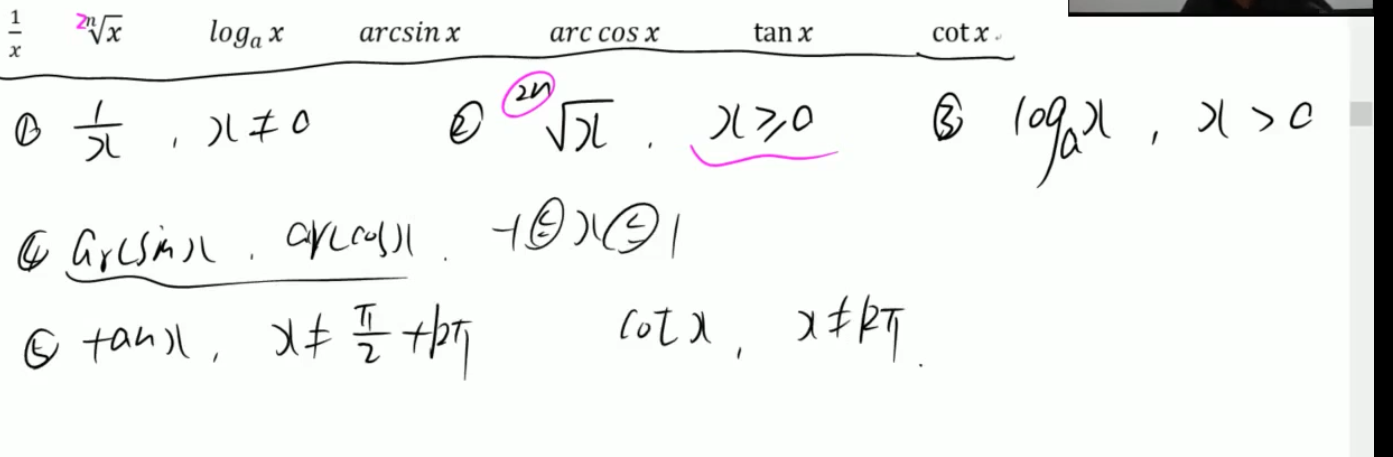 1/x 2n√x log_a x arcsin x arc cos x tan x cot x
① 1/x , x ≠ 0 ② 2n√x . x ⩾ 0 ③ log_a x , x > 0
④ arcsin x . arccos x . -1 ≤ x ≤ 1
⑤ tan x , x ≠ π/2 + kπ cot x , x ≠ kπ .